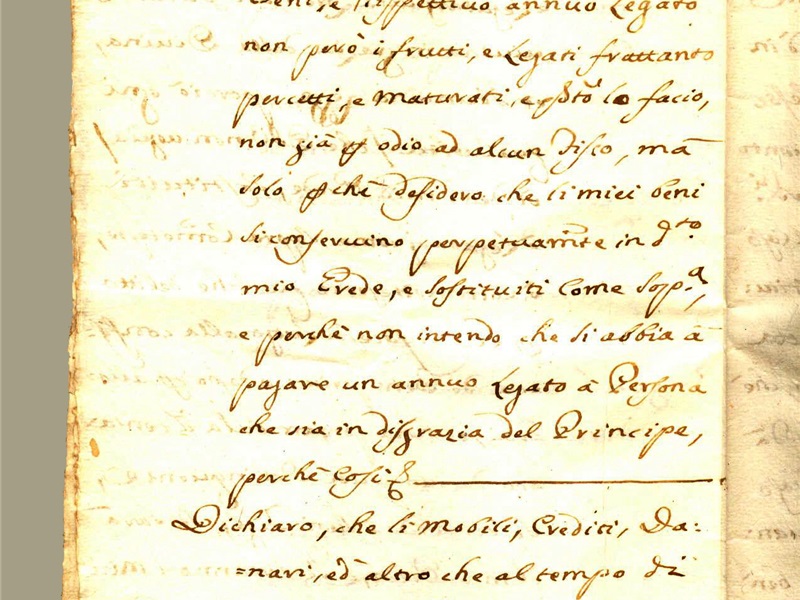 Beni, e rispettivo annuo Legato
non però i frutti, e Legati frattanto
percetti, e maturati, e lo facio,
non già odio ad alcun Fisco, mà
solo chè desidero che li miei beni
si conservino perpetuam̃te in d.to
mio Erede, e sostituiti Come sop.a,
e perchè non intendo che si abbia à
pagare un annuo Legato à Persona
che sia in disgrazia del Principe,
perchè Cosi
Dichiaro, che li Mobili, Crediti, Da:
=nari, ed altro che al tempo di